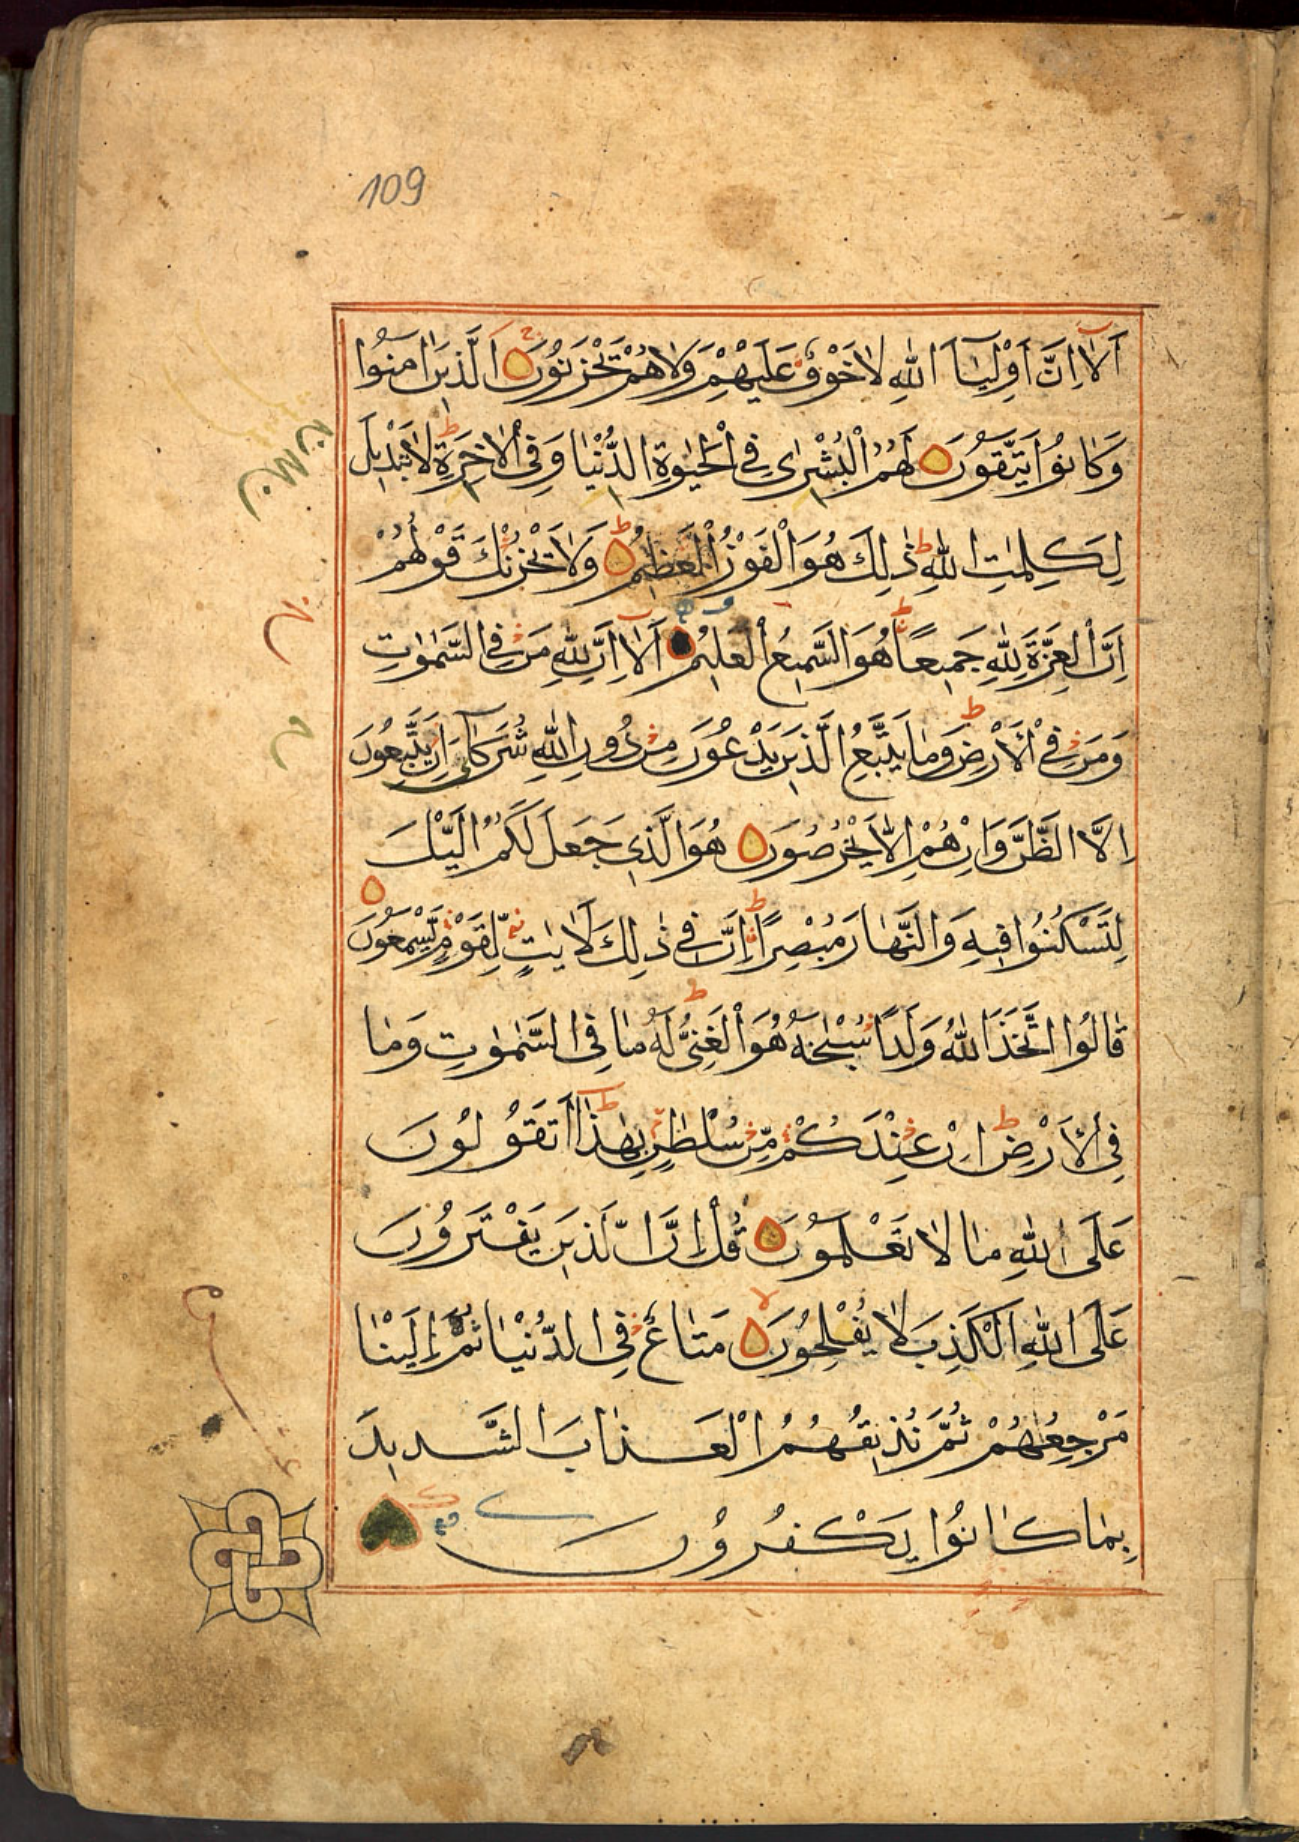 109
اَلَا اِنَّ اَوْلِيَاۤءَ اللهِ لَا خَوْفٌ عَلَيْهِمْ وَلَا هُمْ يَحْزَنُوْنَ اَلَّذِيْنَ اٰمَنُوْا
وَكَانُوْا يَتَّقُوْنَ لَهُمُ الْبُشْرٰى فِي الْحَيٰوةِ الدُّنْيَا وَفِي الْاٰخِرَةِ لَا تَبْدِيْلَ
لِكَلِمٰتِ اللهِ ذٰلِكَ هُوَ الْفَوْزُ الْعَظِيْمُ وَلَا يَحْزُنْكَ قَوْلُهُمْ
اِنَّ الْعِزَّةَ لِلّٰهِ جَمِيْعًا هُوَ السَّمِيْعُ الْعَلِيْمُ اَلَا اِنَّ لِلّٰهِ مَنْ فِي السَّمٰوٰتِ
وَمَنْ فِي الْاَرْضِ وَمَا يَتَّبِعُ الَّذِيْنَ يَدْعُوْنَ مِنْ دُوْنِ اللهِ شُرَكَاۤءَ اِنْ يَتَّبِعُوْنَ
اِلَّا الظَّنَّ وَاِنْ هُمْ اِلَّا يَخْرُصُوْنَ هُوَ الَّذِيْ جَعَلَ لَكُمُ الَّيْلَ
لِتَسْكُنُوْا فِيْهِ وَالنَّهَارَ مُبْصِرًا اِنَّ فِيْ ذٰلِكَ لَاٰيٰتٍ لِقَوْمٍ يَّسْمَعُوْنَ
قَالُوا اتَّخَذَ اللهُ وَلَدًا سُبْحٰنَهُ هُوَ الْغَنِيُّ لَهُ مَا فِي السَّمٰوٰتِ وَمَا
فِي الْاَرْضِ اِنْ عِنْدَكُمْ مِّنْ سُلْطٰنٍ بِهٰذَا اَتَقُوْلُوْنَ
عَلَى اللهِ مَا لَا تَعْلَمُوْنَ قُلْ اِنَّ الَّذِيْنَ يَفْتَرُوْنَ
عَلَى اللهِ الْكَذِبَ لَا يُفْلِحُوْنَ مَتَاعٌ فِي الدُّنْيَا ثُمَّ اِلَيْنَا
مَرْجِعُهُمْ ثُمَّ نُذِيْقُهُمُ الْعَذَابَ الشَّدِيْدَ
بِمَا كَانُوْا يَكْفُرُوْنَ